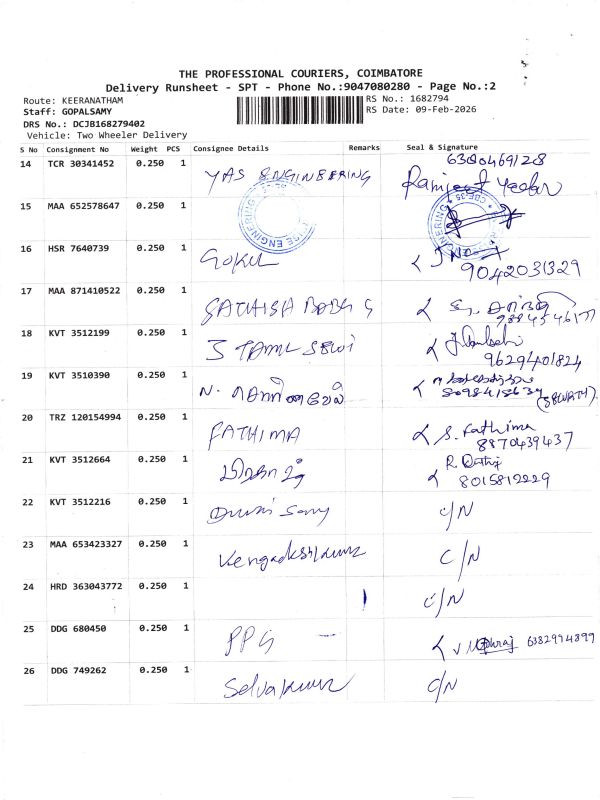 THE PROFESSIONAL COURIERS, COIMBATORE
Delivery Runsheet - SPT - Phone No.:9047080280 - Page No.:2
Route: KEERANATHAM
RS No.: 1682794
Staff: GOPALSAMY
RS Date: 09-Feb-2026
DRS No.: DCJB168279402
Vehicle: Two Wheeler Delivery
S No Consignment No Weight PCS Consignee Details Remarks Seal & Signature
14 TCR 30341452 0.250 1 YAS ENGINEERING Ranjeet Yadav
15 MAA 652578647 0.250 1
16 HSR 7640739 0.250 1 GOKUL 9042031329
17 MAA 871410522 0.250 1 SATHISH BABU G
18 KVT 3512199 0.250 1 S TAMIL SELVI 9629401824
19 KVT 3510390 0.250 1 N.
20 TRZ 120154994 0.250 1 FATHIMA S. Fathima
8870439437
21 KVT 3512664 0.250 1 R.
8015812229
22 KVT 3512216 0.250 1 C/N
23 MAA 653423327 0.250 1 C/N
24 HRD 363043772 0.250 1 C/N
25 DDG 680450 0.250 1 PPG 6382994899
26 DDG 749262 0.250 1 Selvakumar C/N